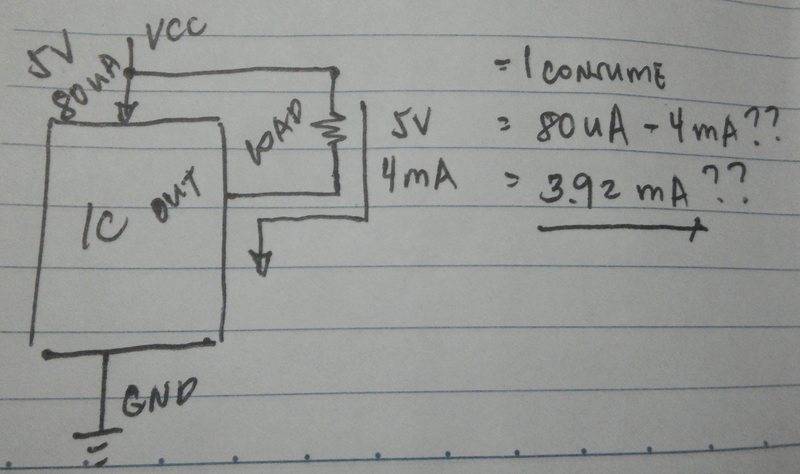 VCC
5V
80uA
LOAD
IC OUT
5V
4mA
GND
= I CONSUME
= 80uA - 4mA??
= 3.92 mA??